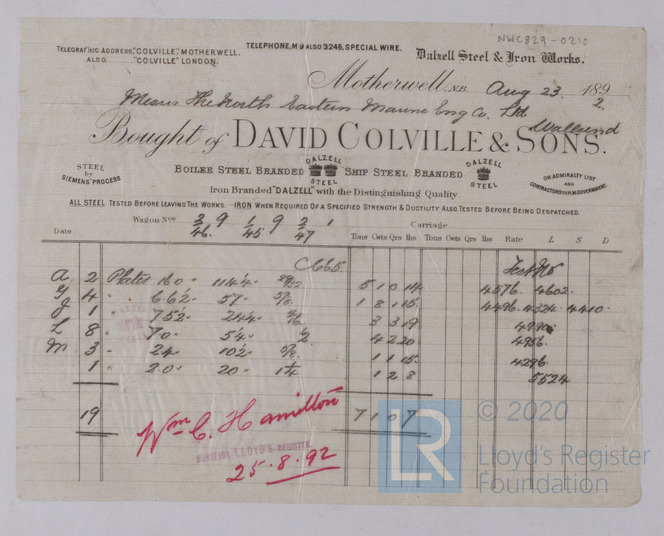 NWC829-0210
TELEGRAPHIC ADDRESS, "COLVILLE", MOTHERWELL.
ALSO "COLVILLE" LONDON.
TELEPHONE, No 9 ALSO 3245, SPECIAL WIRE.
Dalzell Steel & Iron Works.
Motherwell, N.B. Aug 23 1892.
Messrs The North Eastern Marine Eng Co. Ltd
Wallsend
Bought of DAVID COLVILLE & SONS.
STEEL by SIEMENS' PROCESS
BOILER STEEL BRANDED DALZELL STEEL SHIP STEEL BRANDED DALZELL STEEL
ON ADMIRALTY LIST AND CONTRACTORS TO H.M. GOVERNMENT.
Iron Branded "DALZELL" with the Distinguishing Quality.
ALL STEEL TESTED BEFORE LEAVING THE WORKS. IRON WHEN REQUIRED OF A SPECIFIED STRENGTH & DUCTILITY ALSO TESTED BEFORE BEING DESPATCHED.
Wagon Nos 2/46. 9 1/45 9 2/47
Carriage
Date Tons Cwts Qrs lbs Tons Cwts Qrs lbs Rate L S D
C665. Test No
A 2 Plates 5 10 14 4576. 4602.
4 " 6.6½ 57 1 8 1 15 4496. 4324 4410
1 " 3 3 19
L 8 " 7.0 5'4 ½ 4 2 20 4956.
M 3 " 24 102 1 1 15 4296.
1 " 2.0 20 1¼ 1 2 8 5524
19 7 1 0 7
Wm C. Hamilton
LLOYD'S REGISTER
25.8.92
LR
© 2020
Lloyd's Register
Foundation